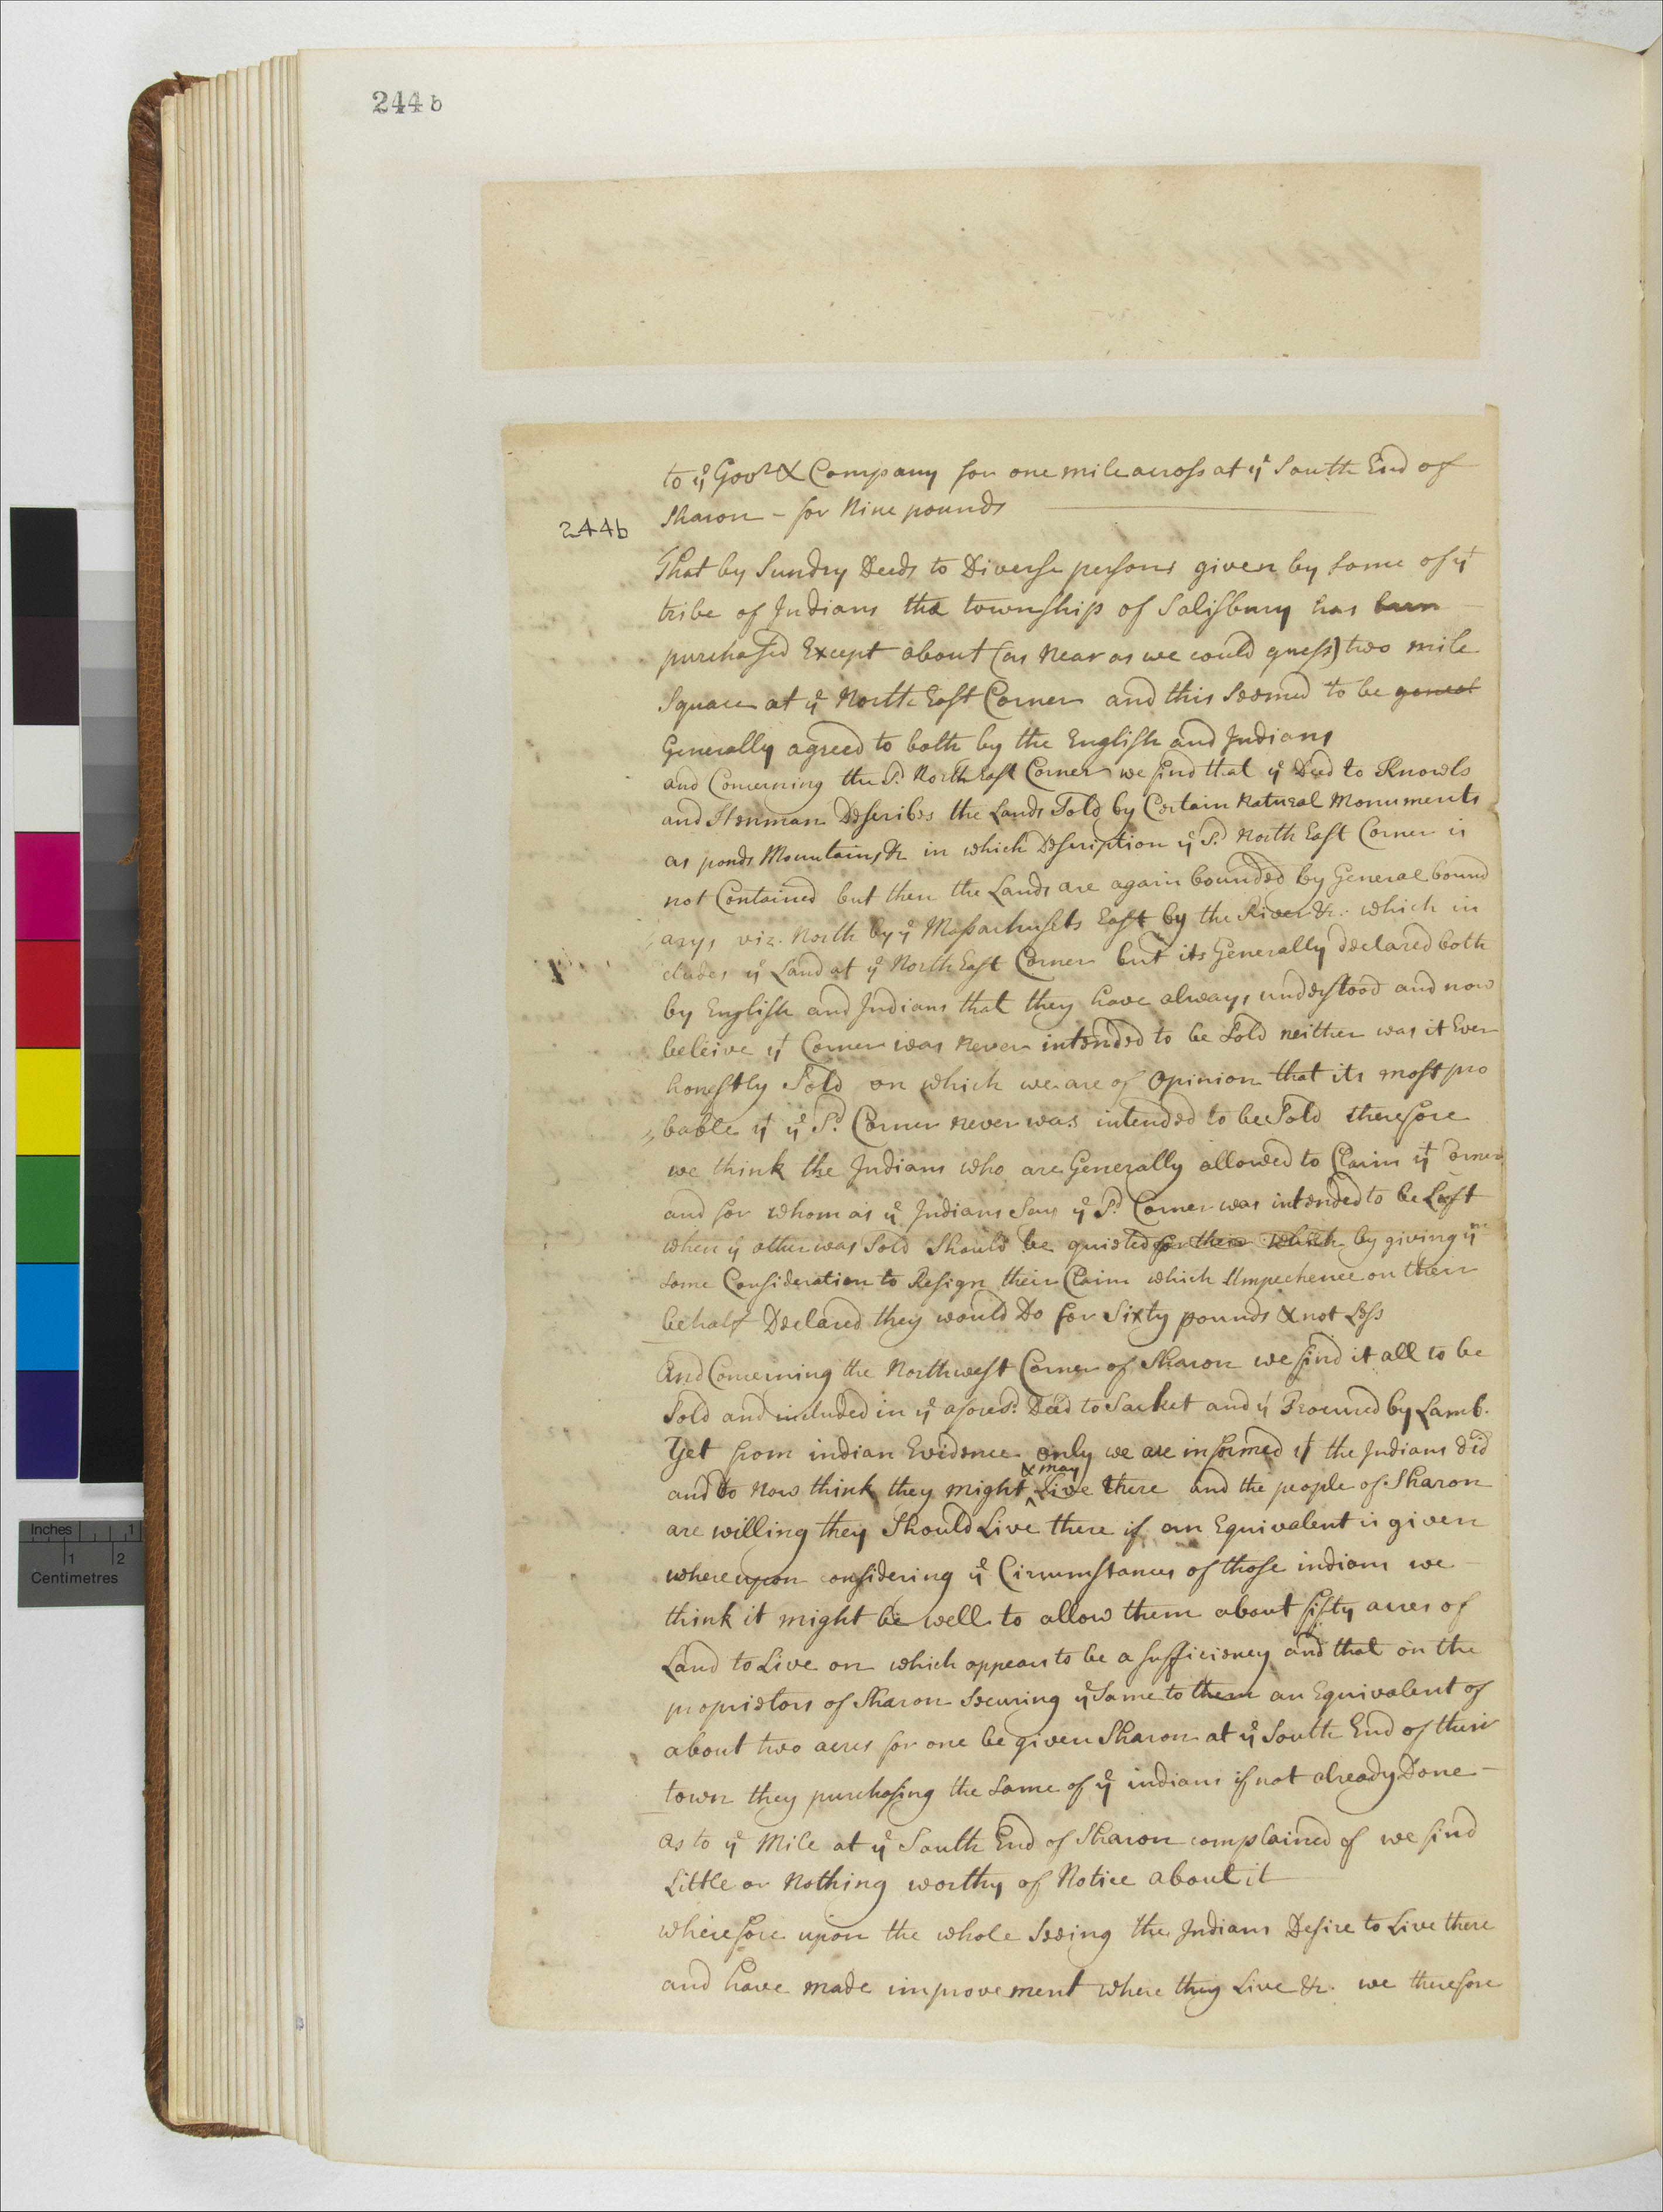 244 b
to yᵉ Govʳ & Company for one mile across at yᵉ South End of
244b
Sharon - for Nine pounds
That by Sundry Deeds to Diverse persons given by some of yᵗ
tribe of Indians the township of Salisbury has been
purchased Except about (as Near as we could guess) two mile
Square at yᵉ North East Corner and this Seemed to be general
Generally agreed to both by the English and Indians
and Concerning the Sᵈ North East Corner we find that yᵉ Deed to Knowls
and Henman Describes the Lands Sold by Certain Natural Monuments
as ponds Mountains &c in which Description yᵉ Sᵈ North East Corner is
not Contained but then the Lands are again bounded by General bound
arys viz. North by yᵉ Massachusets East by the River &c. which in
cludes yᵉ Land at yᵉ North East Corner but its Generally Declared both
by English and Indians that they have always understood and now
beleive yᵗ Corner was Never intended to be Sold neither was it Ever
honestly Sold on which we are of Opinion that its most pro
bable yᵗ yᵉ Sᵈ Corner never was intended to be Sold therefore
we think the Indians who are Generally allowed to Claim yᵗ Corner
and for whom as yᵉ Indians Say yᵉ Sᵈ Corner was intended to be Left
when yᵉ other was Sold Should be quieted for their which by giving yᵐ
Some Consideration to Resign their Claim which Umpechenee on their
behalf Declared they would Do for Sixty pounds & not Less
And Concerning the Northwest Corner of Sharon we find it all to be
Sold and included in yᵉ aforesᵈ Deed to Sacket and yᵗ Procured by Lamb.
Yet from indian Evidence only we are informed yᵗ the Indians did
& may
and do Now think they might live there and the people of Sharon
are willing they Should Live there if an Equivalent is given
whereupon considering yᵉ Circumstances of those indians we
think it might be well to allow them about fifty acres of
Land to Live on which appears to be a sufficiency and that on the
proprietors of Sharon Securing yᵉ Same to them an Equivalent of
about two acres for one be given Sharon at yᵉ South End of their
town they purchasing the Same of yᵉ indians if not already Done -
as to yᵉ Mile at yᵉ South End of Sharon complained of we find
Little or Nothing worthy of Notice about it
wherefore upon the whole Seeing the Indians Desire to Live there
and have made improvement where they Live &c. we therefore
Inches 1
1 2
Centimetres